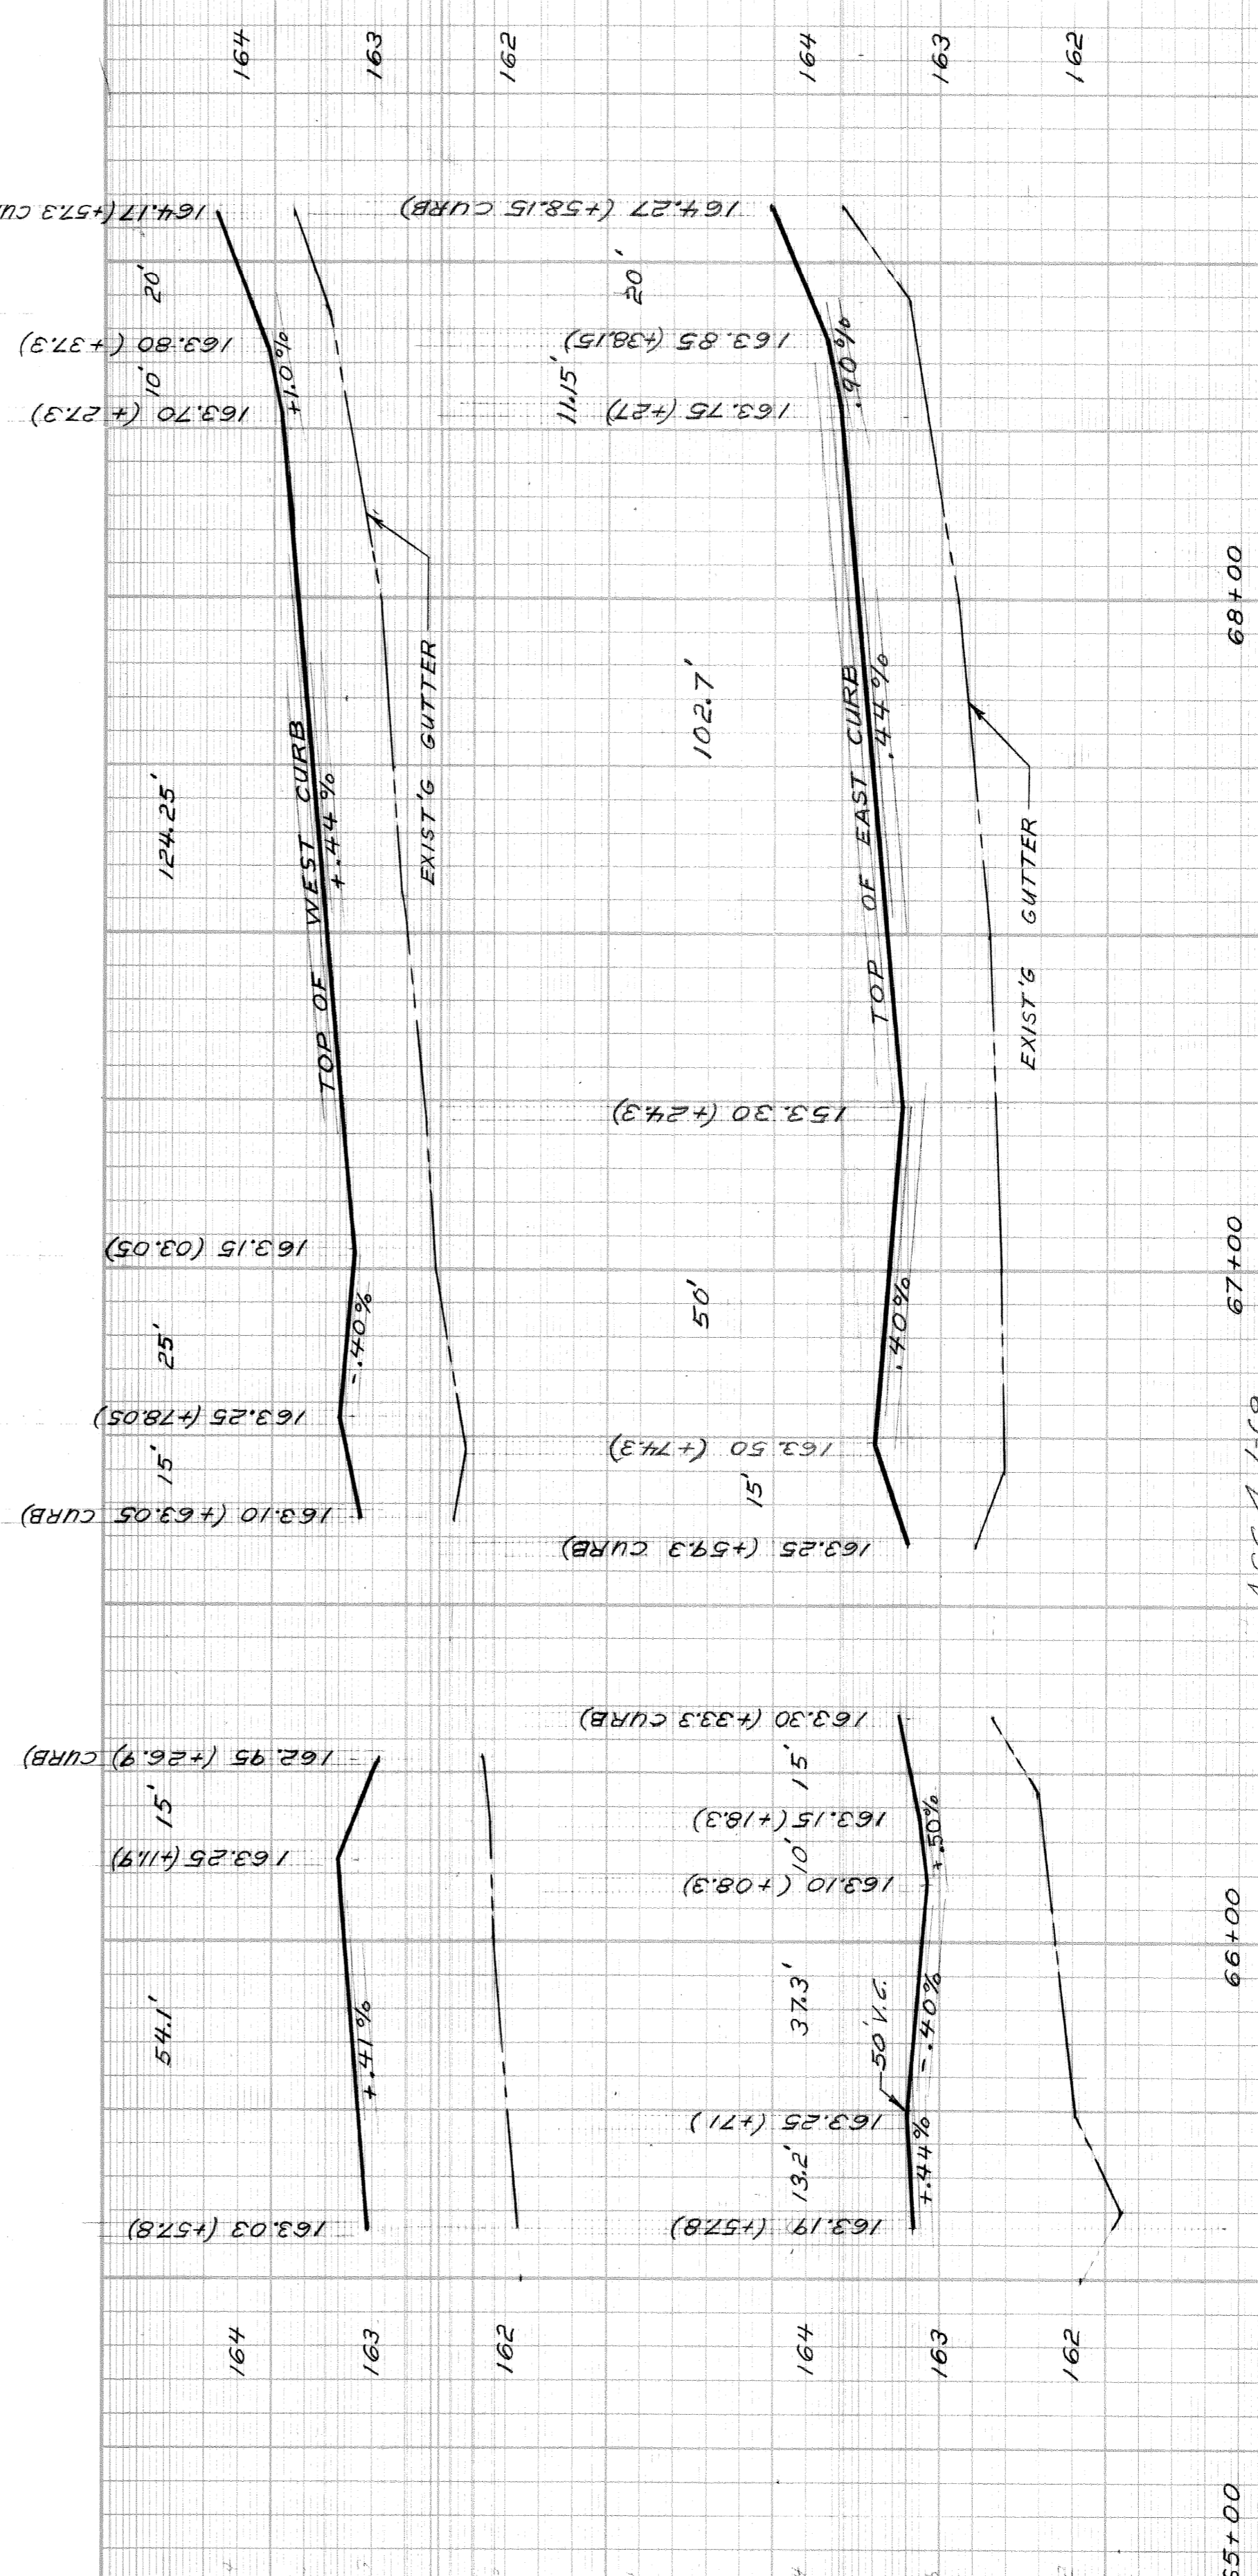 164
163
162
164
163
162
164.17 (+57.3 CU
20'
163.80 (+37.3)
10'
+1.0%
163.70 (+27.3)
124.25'
TOP OF WEST CURB
+.44%
EXIST'G GUTTER
163.15 (03.05)
25'
-.40%
163.25 (+78.05)
15'
163.10 (+63.05 CURB)
164.27 (+58.15 CURB)
20'
163.85 (+38.15)
11.15'
.90%
163.75 (+27)
102.7'
TOP OF EAST CURB
.44%
EXIST'G GUTTER
153.30 (+24.3)
50'
.40%
163.50 (+74.3)
15'
163.25 (+59.3 CURB)
162.95 (+26.9) CURB)
15'
163.25 (+11.9)
54.1'
+.41%
163.03 (+57.8)
163.30 (+33.3 CURB)
15'
163.15 (+18.3)
10'
+.50%
163.10 (+08.3)
37.3'
50' V.C.
-.40%
163.25 (+71)
13.2'
+.44%
163.19 (+57.8)
164
163
162
164
163
162
68+00
67+00
66+00
65+00